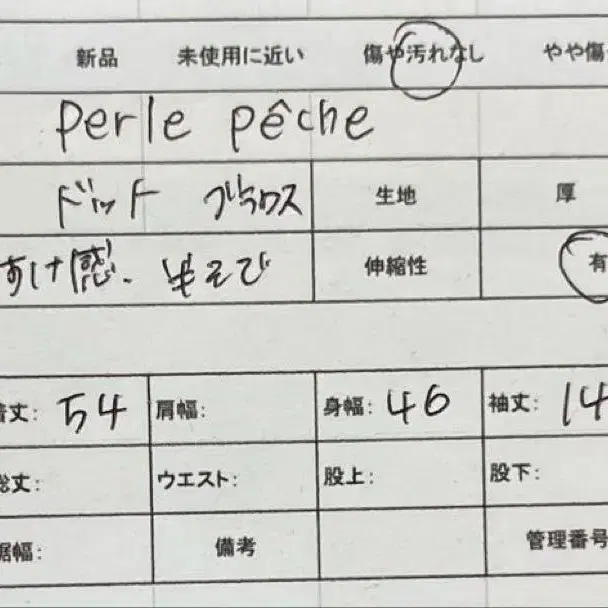 新品 未使用に近い 傷や汚れなし やや傷
perle pêche
ドット ブラウス 生地 厚
すけ感. 半そで 伸縮性 有
着丈: 54 肩幅: 身幅: 46 袖丈: 14
総丈: ウエスト: 股上: 股下:
裾幅: 備考 管理番号